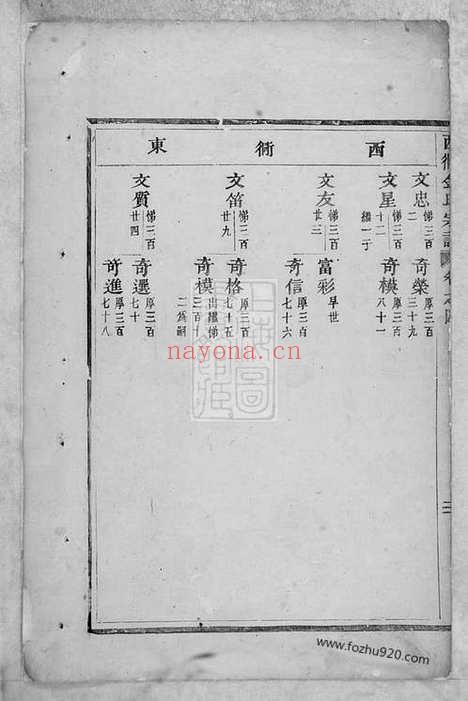 西衕東
文忠 悌三百二
奇榮 厚三百三十九
文星 悌三百十二 繼一子
奇模 厚三百八十一
文友 悌三百廿三
富彩 早世
奇信 厚三百七十六
文笛 悌三百廿九
奇格 厚三百七十五
奇模 出繼悌三百十二為嗣
文質 悌三百廿四
奇選 厚三百七十
奇進 厚三百七十八
二
nayona.cn
www.fozhu920.com